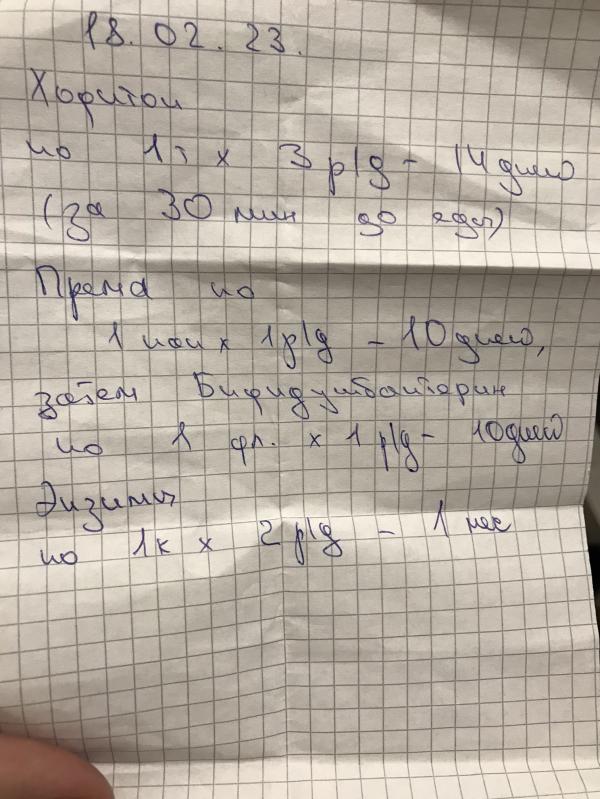 18.02.23.
Хофитол
по 1т х 3 р/д - 14 дней
(за 30 мин до еды)
Према по
1 кап х 1р/д - 10 дней,
затем Бифидумбактерин
по 1 фл. х 1 р/д - 10 дней
Энзимы
по 1к х 2 р/д - 1 мес